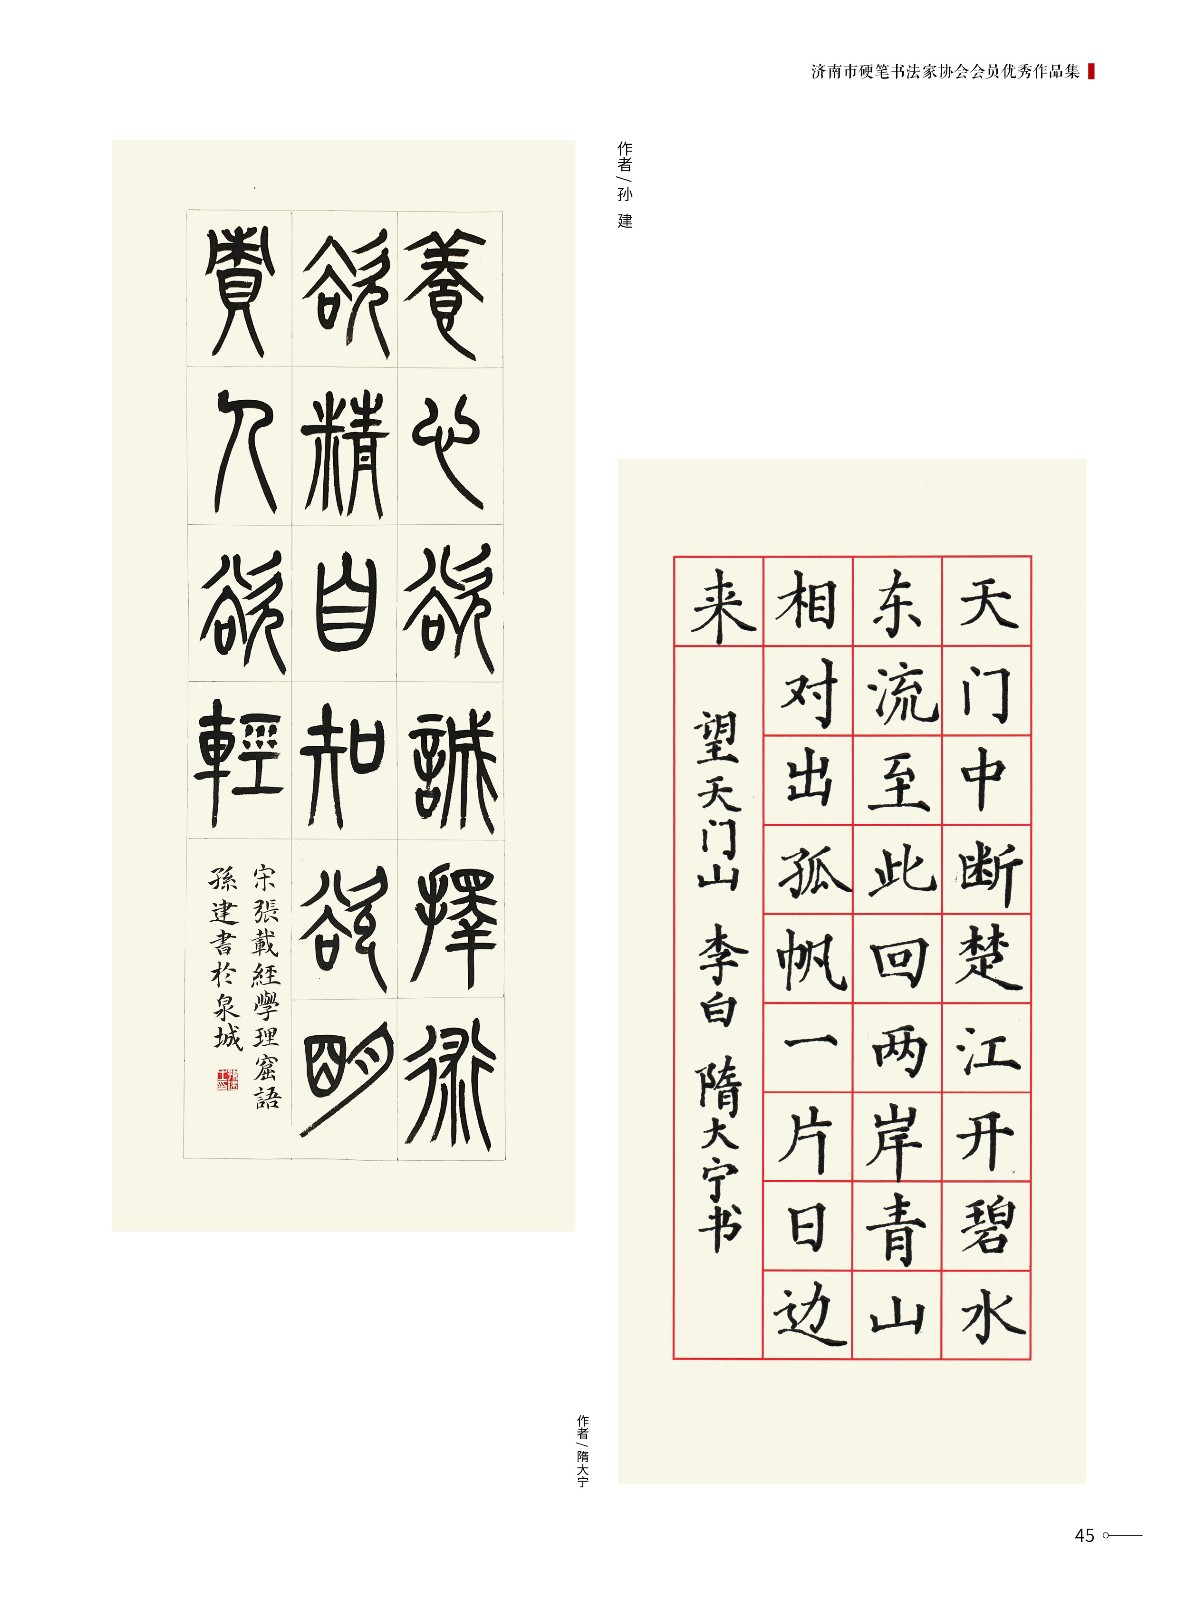 济南市硬笔书法家协会会员优秀作品集
作者/孙 建
養心欲誠擇術
欲精自知欲明
責人欲輕
宋張載經學理窟語
孫建書於泉城
天门中断楚江开碧水
东流至此回两岸青山
相对出孤帆一片日边
来
望天门山 李白 隋大宁书
作者/隋大宁
45